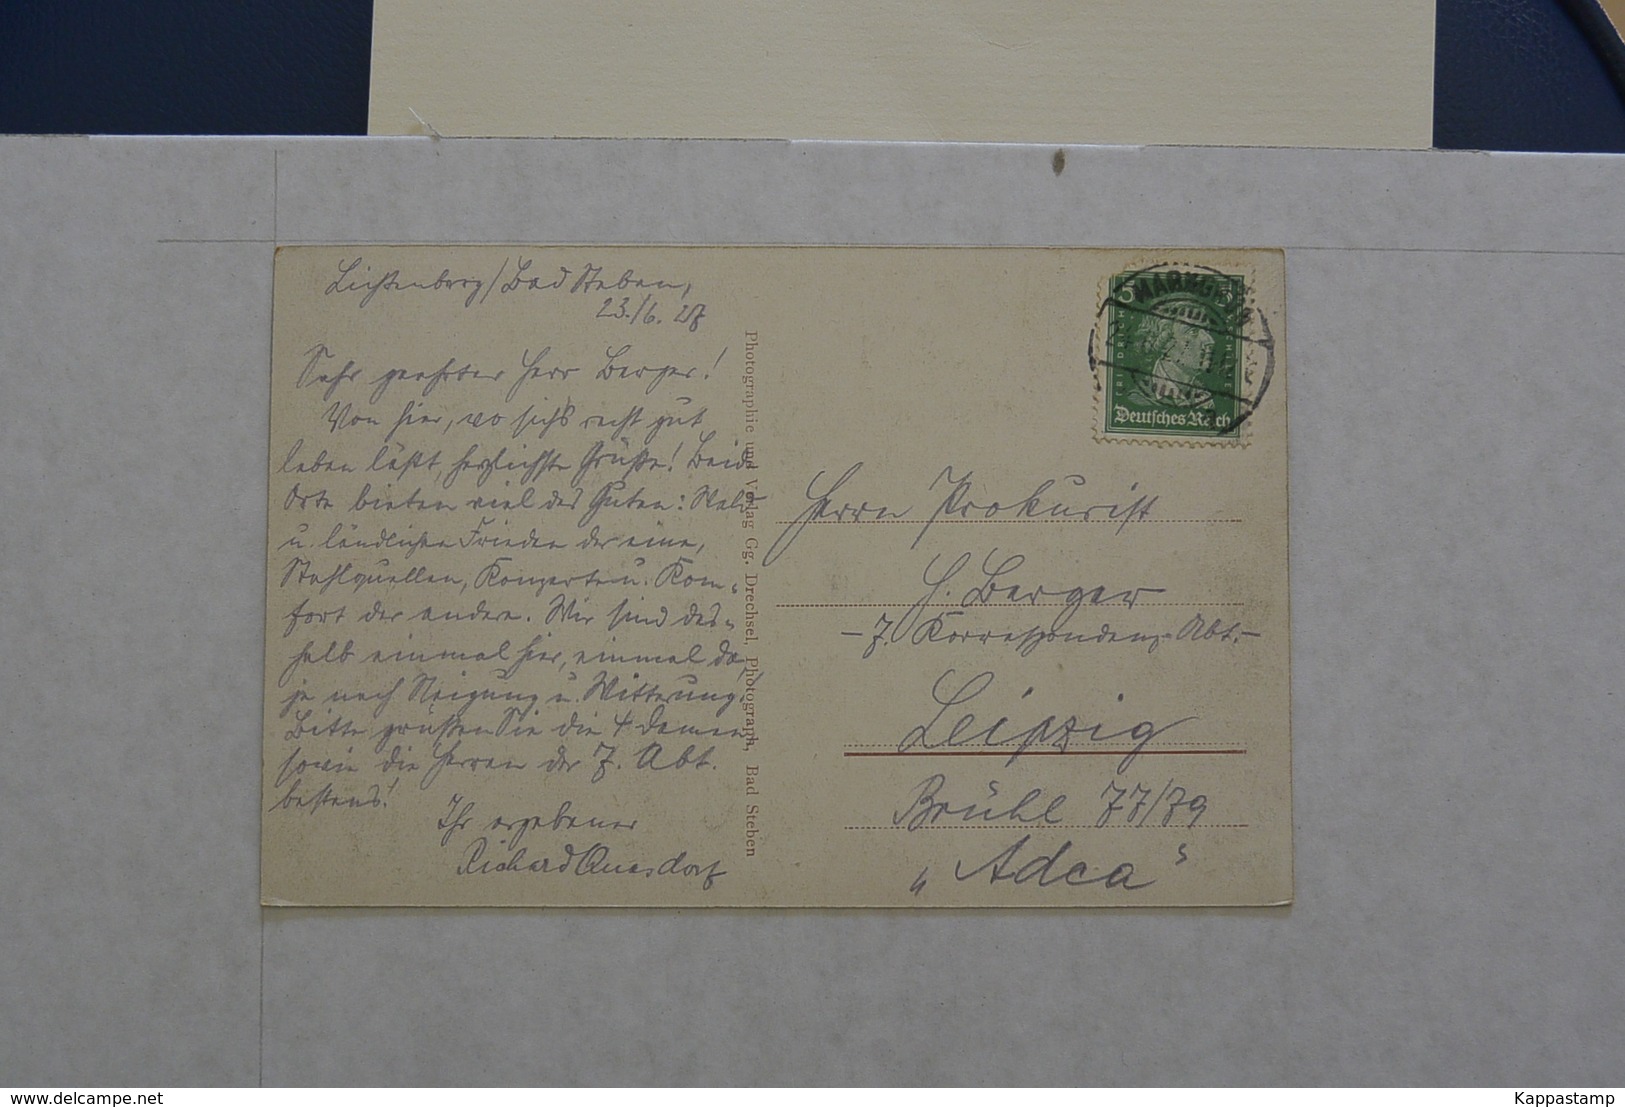 Lichtenberg/Bad Steben,
23./6. 27
Sehr geehrter Herr Berger!
Von hier, wo sichs recht gut
leben läßt, herzlichste Grüße! Beide
Orte bieten viel des Guten: Wald
u. ländlichen Frieden der eine,
Stahlquellen, Konzerte u. Kom-
fort der andere. Wir sind des-
halb einmal hier, einmal da,
je nach Neigung u. Witterung.
Bitte grüßen Sie die 4 Damen
sowie die Herren der 7. Abt.
bestens!
Ihr ergebener
Richard
Photographie und Verlag Gg. Drechsel, Photograph, Bad Steben
5 5
FRIEDRICH SCHILLER
Deutsches Reich
Herrn Prokurist
H. Berger
- 7. Korrespondenz-Abt. -
Leipzig
Brühl 77/79
„Adca"
delcampe.net
Kappastamp